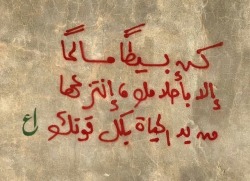 كن بسيطًا مسالمًا
إلا بأحلامك، إنتزعها
من يد الحياة بكل قوتك
ع